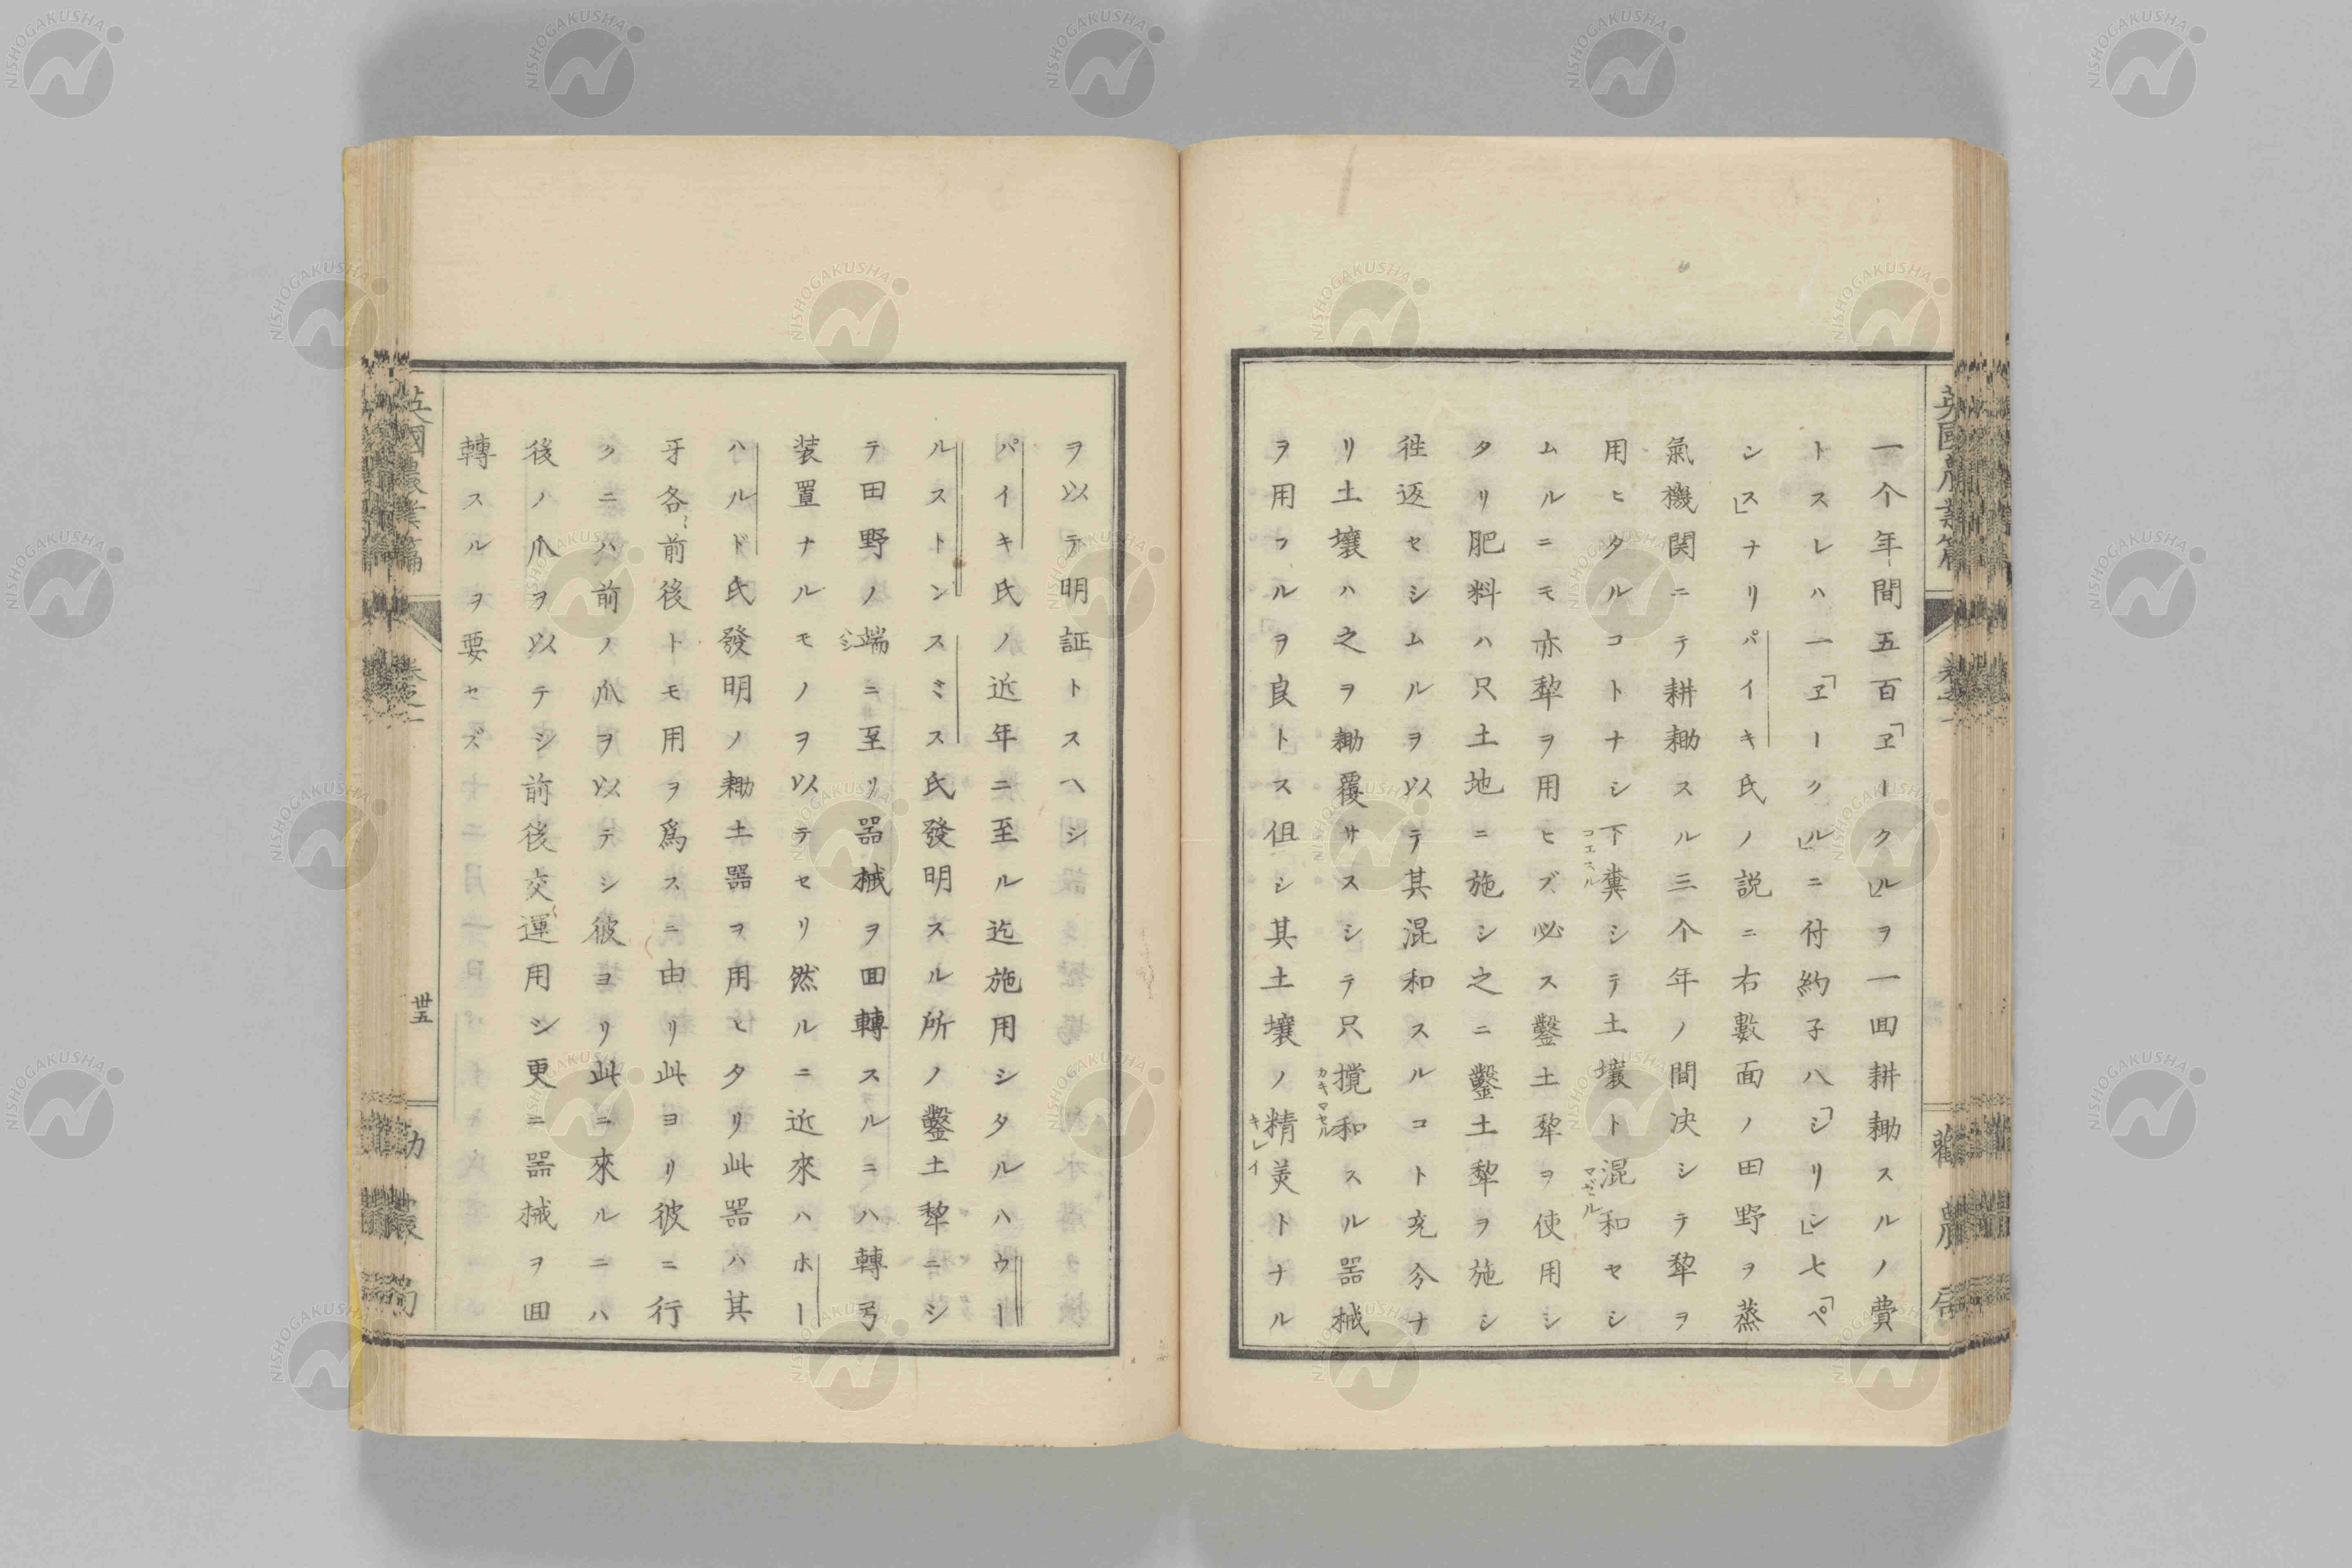 一个年間五百「ヱークル」ヲ一囬耕耡スルノ費
トスレハ一「ヱークル」ニ付約子八「シリン」七「ペ
ンス」ナリパイキ氏ノ説ニ右數面ノ田野ヲ蒸
氣機関ニテ耕耡スル三个年ノ間决シテ犂ヲ
用ヒタルコトナシ下糞シテ土壤ト混和セシ
コエスル
マゼル
ムルニモ亦犂ヲ用ヒズ必ス鑿土犂ヲ使用シ
タリ肥料ハ只土地ニ施シ之ニ鑿土犂ヲ施シ
徃返セシムルヲ以テ其混和スルコト充分ナ
リ土壤ハ之ヲ耡覆サスシテ只攪和スル器械
カキマセル
ヲ用フルヲ良トス伹シ其土壤ノ精美トナル
キレイ
ヲ以テ明証トスヘシ
パイキ氏ノ近年ニ至ル迄施用シタルハウー
ルストンスミス氏發明スル所ノ鑿土犂ニシ
テ田野ノ端ニ至リ器械ヲ囬轉スルニハ轉弓
シ
装置ナルモノヲ以テセリ然ルニ近來ハホー
ハルド氏發明ノ耡土器ヲ用ヒタリ此器ハ其
牙各前後トモ用ヲ爲スニ由リ此ヨリ彼ニ行
クニハ前ノ爪ヲ以テシ彼ヨリ此ニ來ルニハ
後ノ爪ヲ以テシ前後交運用シ更ニ器械ヲ囬
轉スルヲ要セズ
英國農業篇
卷之一
丗五
勸農局
NISHOGAKUSHA